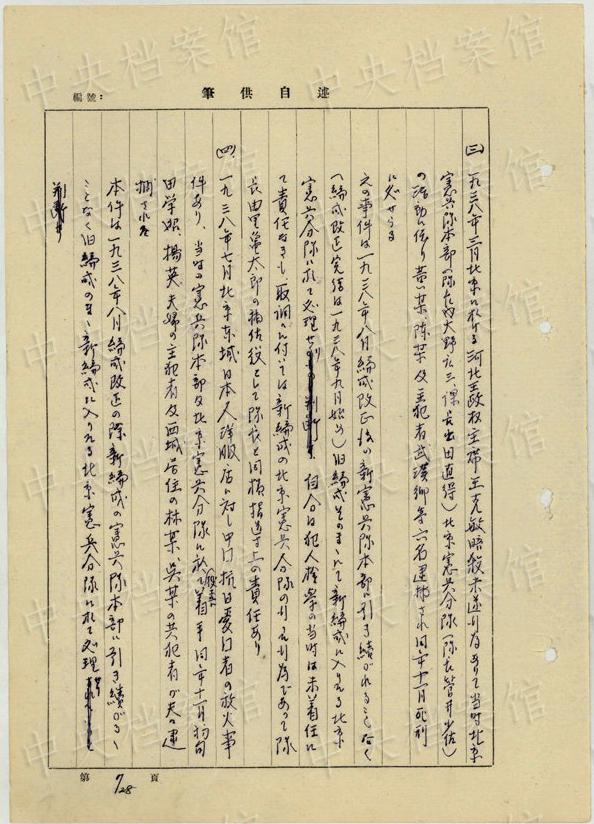 編號：
述自供筆
(三) 一九三八年三月北京に於ける河北王政权主席王克敏暗殺未遂行為ありて当時北京
憲兵隊本部(隊長内大野広三、課長出田直得)北京憲兵分隊(隊長皆井少佐)
の活動に依り黄某、陳某及主犯者武漢卿等六名逮捕され同年十一月死刑
に処せらる
之の事件は一九三八年八月編成改正後の新憲兵隊本部に引き續がれることなく
(編成改正完結は一九三八年九月始め)旧編成そのまゝにて新編成に入りたる北京
憲兵分隊に於て処理せり 自分は犯人検挙の当時は未着任に
て責任なきも取調に付いては新編成の北京憲兵分隊の行えた行為であって隊
長由里亀太郎の補佐役として隊長と同様指導上の責任あり
(四) 一九三八年七月北京东城日本人洋服店に対し中国抗日愛国者の放火事
件あり、当時の憲兵隊本部及北京憲兵分隊に於て捜査着手同年十一月初旬
田学姫、楊英夫婦の主犯者及西城居住の林某、呉某の共犯者が夫々逮
捕された
本件は一九三八年八月編成改正の際新編成の憲兵隊本部に引き續がるゝ
ことなく旧編成のまゝ新編成に入りたる北京憲兵分隊に於て処理
判断す
第 7/28 頁
中央档案馆